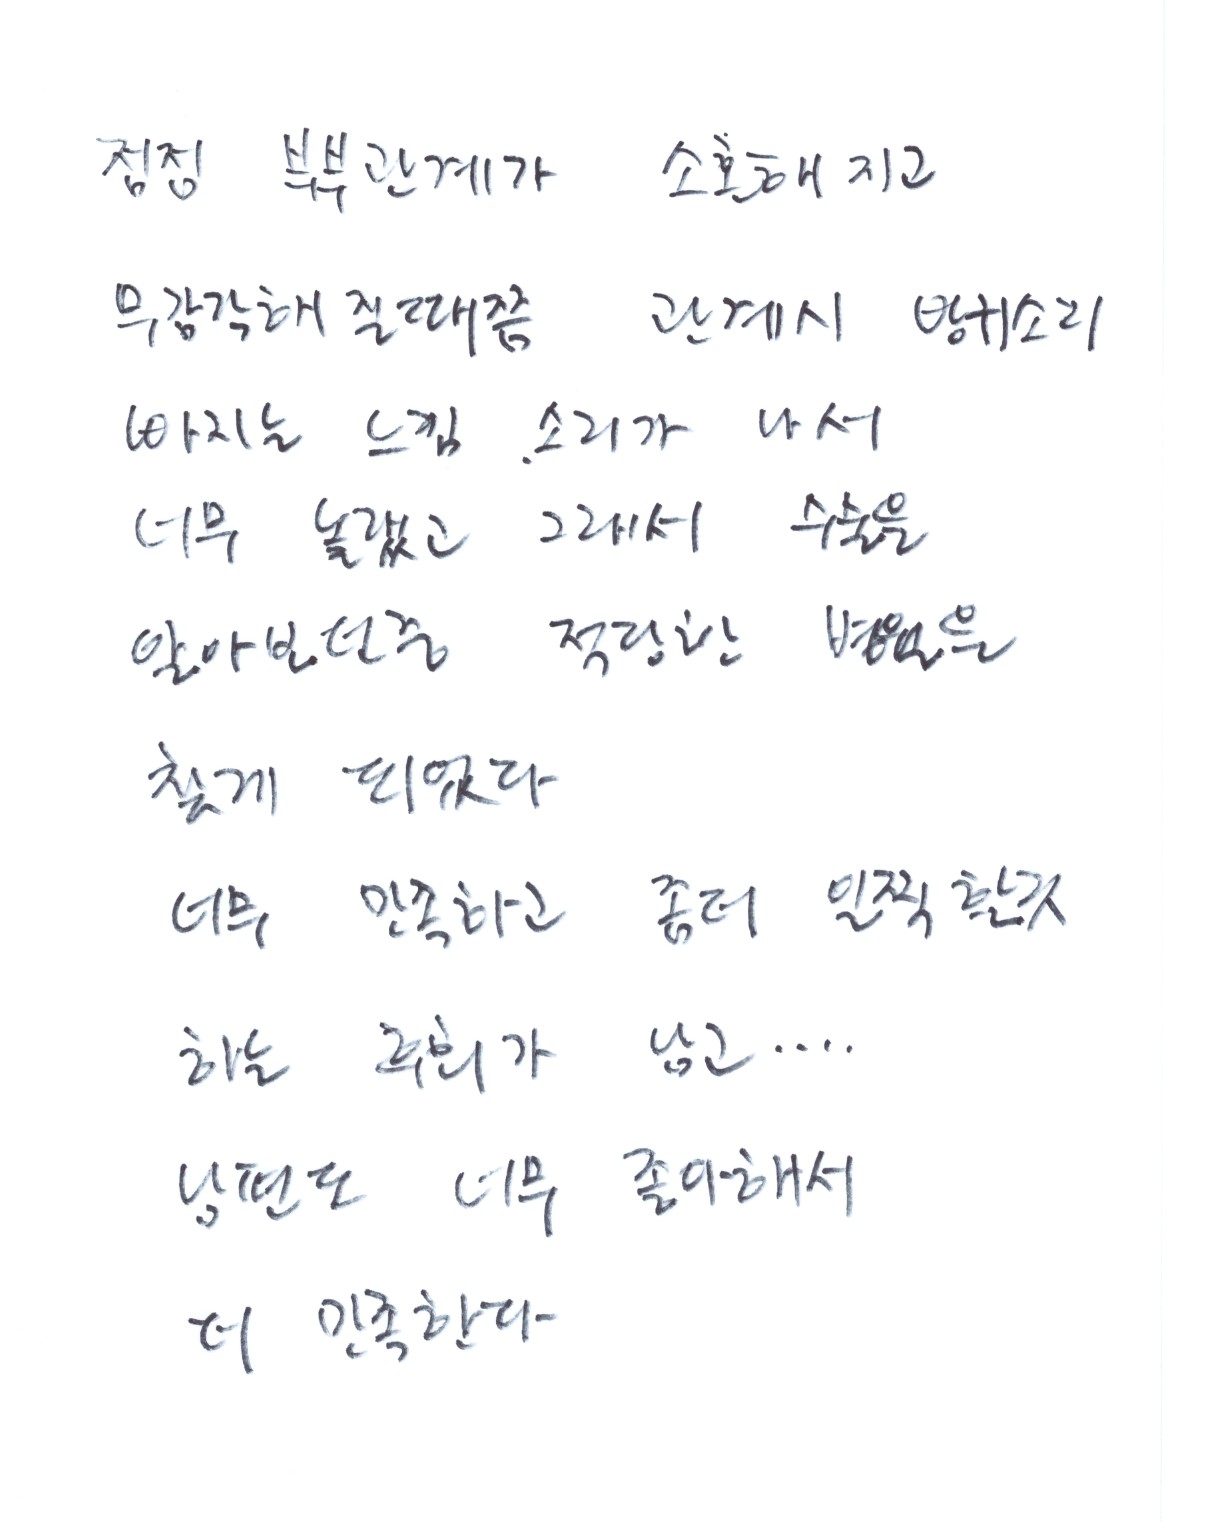 점점 부부관계가 소홀해지고
무감각해 질때쯤 관계시 방귀소리
빠지는 느낌 소리가 나서
너무 놀랬고 그래서 수술을
알아보던중 적당한 병원을
찾게 되었다
너무 만족하고 좀더 일찍 할것
하는 후회가 남고....
남편도 너무 좋아해서
더 만족한다